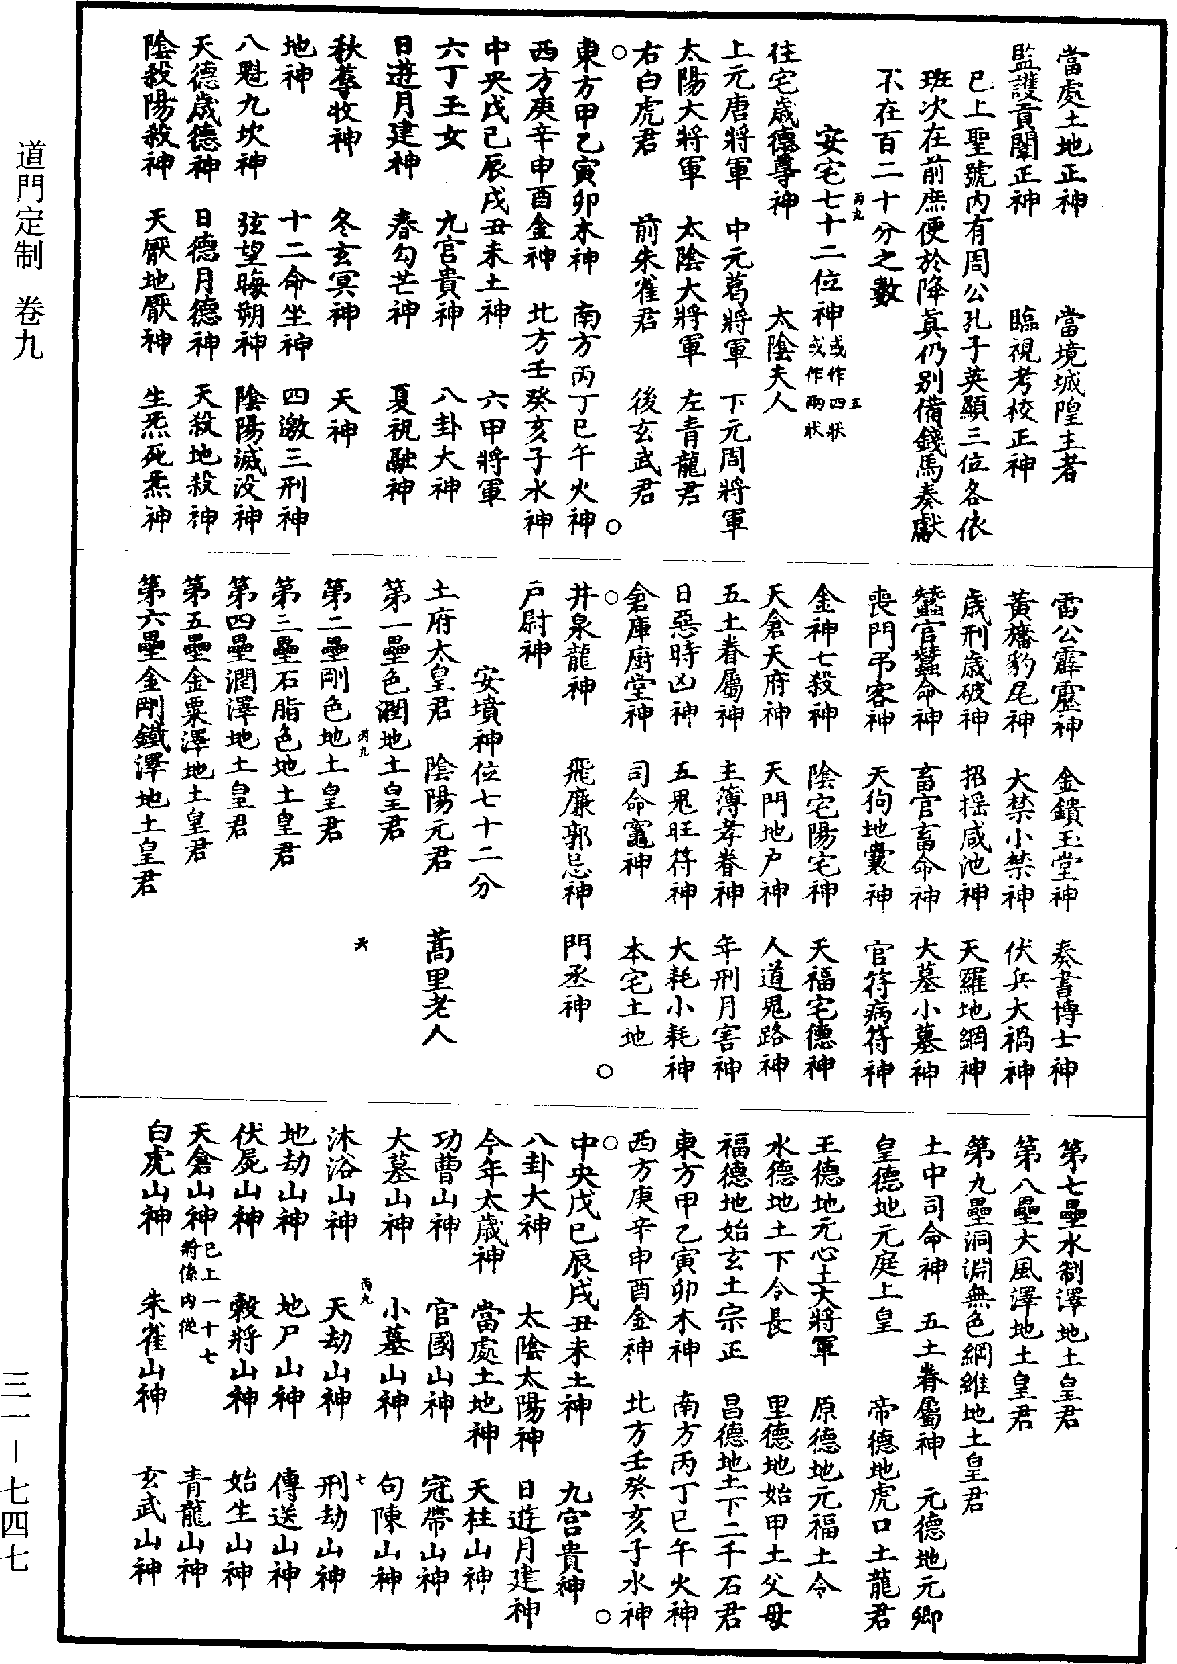 當處土地正神　當境城隍主者
監護貢闈正神　臨視考校正神
已上聖號內有周公孔子英顯三位各依
班次在前庶便於降真仍别備錢馬奏獻
不在百二十分之數
丙九　五
安宅七十二位神或作四狀或作兩狀
住宅歲德尊神　太陰夫人
上元唐將軍　中元葛將軍　下元周將軍
太陽大將軍　太陰大將軍　左青龍君
右白虎君　前朱雀君　後玄武君
○　○
東方甲乙寅卯木神　南方丙丁巳午火神
西方庚辛申酉金神　北方壬癸亥子水神
中央戊己辰戌丑未土神　六甲將軍
六丁玉女　九宮貴神　八卦大神
日遊月建神　春勾芒神　夏祝融神
秋蓐牧神　冬玄冥神　天神
地神　十二命坐神　四激三刑神
八魁九坎神　弦望晦朔神　陰陽滅没神
天德歲德神　日德月德神　天殺地殺神
陰殺陽殺神　天厭地厭神　生炁死炁神
雷公霹靂神　金鐀玉堂神　奏書博士神
黃旛豹尾神　大禁小禁神　伏兵大禍神
歲刑歲破神　招摇咸池神　天羅地網神
蠶官蠶命神　畜官畜命神　大墓小墓神
喪門弔客神　天狗地囊神　官符病符神
金神七殺神　陰宅陽宅神　天福宅德神
天倉天府神　天門地户神　人道鬼路神
五土眷屬神　主薄孝眷神　年刑月害神
日惡時凶神　五鬼旺符神　大耗小耗神
倉庫廚堂神　司命竈神　本宅土地
○　○
井泉龍神　飛廉郭忌神　門丞神
户尉神
安墳神位七十二分
土府太皇君　陰陽元君　蒿里老人
第一壘色潤地土皇君
丙九　六
第二壘剛色地土皇君
第三壘石脂色地土皇君
第四壘潤澤地土皇君
第五壘金粟澤地土皇君
第六壘金剛鐵澤地土皇君
第七壘水制澤地土皇君
第八壘大風澤地土皇君
第九壘洞淵無色綱維地土皇君
土中司命神　五土眷屬神　元德地元卿
皇德地元庭上皇　帝德地虎口土龍君
王德地元心土大將軍　原德地元福土令
水德地土下令長　里德地始甲土父母
福德地始玄土宗正　昌德地土下二千石君
東方甲乙寅卯木神　南方丙丁巳午火神
西方庚辛申酉金神　北方壬癸亥子水神
○　○
中央戊己辰戌丑未土神　九宮貴神
八卦大神　太陰太陽神　日遊月建神
今年太歲神　當處土地神　天柱山神
功曹山神　官國山神　冠帶山神
大墓山神　小墓山神　句陳山神
丙九　七
沐浴山神　天劫山神　刑劫山神
地劫山神　地尸山神　傳送山神
伏屍山神　穀將山神　始生山神
天倉山神已上一十七將係内從　青龍山神
白虎山神　朱雀山神　玄武山神
道門定制　卷九
三一—七四七